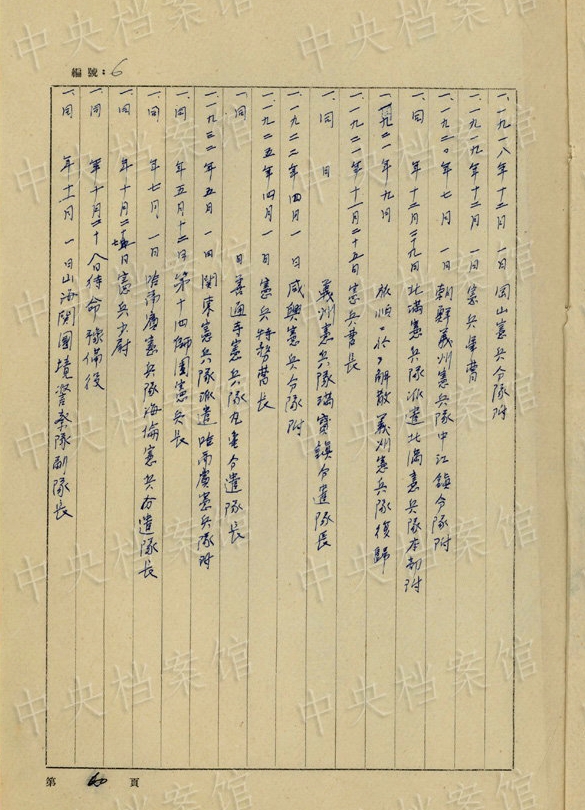 編號：6
一、一九一八年十二月　一日岡山憲兵分隊附
一、一九一九年十二月　一日憲兵軍曹
一、一九二〇年七月　一日朝鮮義州憲兵隊中江鎮分隊附
一、同　年十二月二十九日北滿憲兵隊派遣北滿憲兵隊本部附
一、一九二一年九月　解散義州憲兵隊復歸
一、一九二一年十一月二十五日憲兵曹長
一、同　日　義州憲兵隊滿寶鎮分遣隊長
一、一九二二年四月一日咸興憲兵分隊附
一、一九二五年四月一日憲兵特務曹長
一、同　日善通寺憲兵隊丸亀分遣隊長
一、一九三二年五月一日関東憲兵隊派遣哈爾濱憲兵隊附
一、同　年五月十二日第十四師團憲兵長
一、同　年七月一日哈爾濱憲兵隊海倫憲兵分遣隊長
一、同　年十月二十七日憲兵少尉
一、同　年十月二十八日待命豫備役
一、同　年十一月一日山海関國境警察隊副隊長
第　頁
中央档案馆